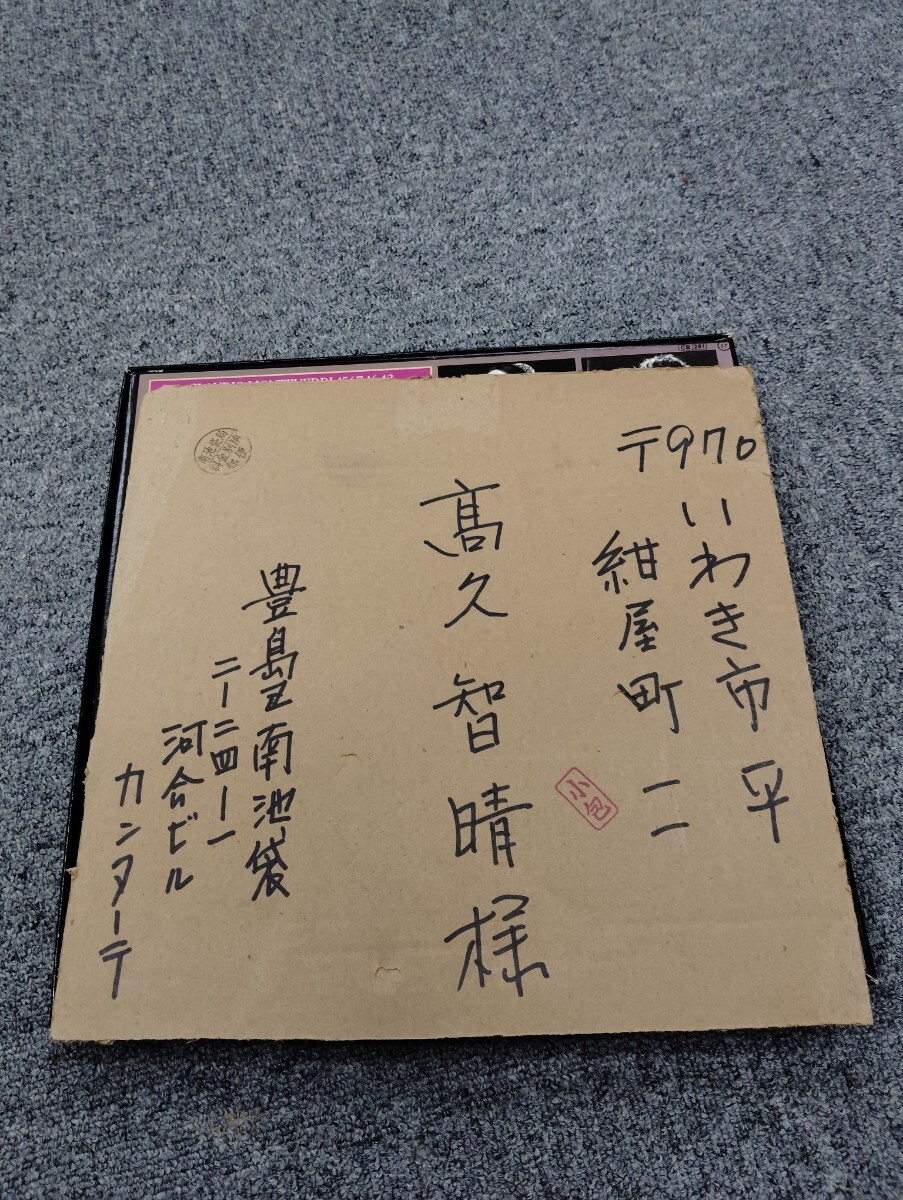 〒970
いわき市平
紺屋町二
髙久智晴様
小包
豊島区南池袋
二ー二四ー一
河合ビル
カンターテ